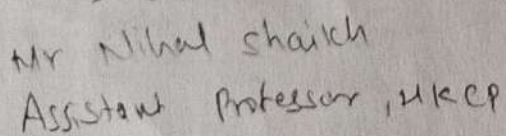 Mr Nihal Shaikh
Assistant Professor, HKCP